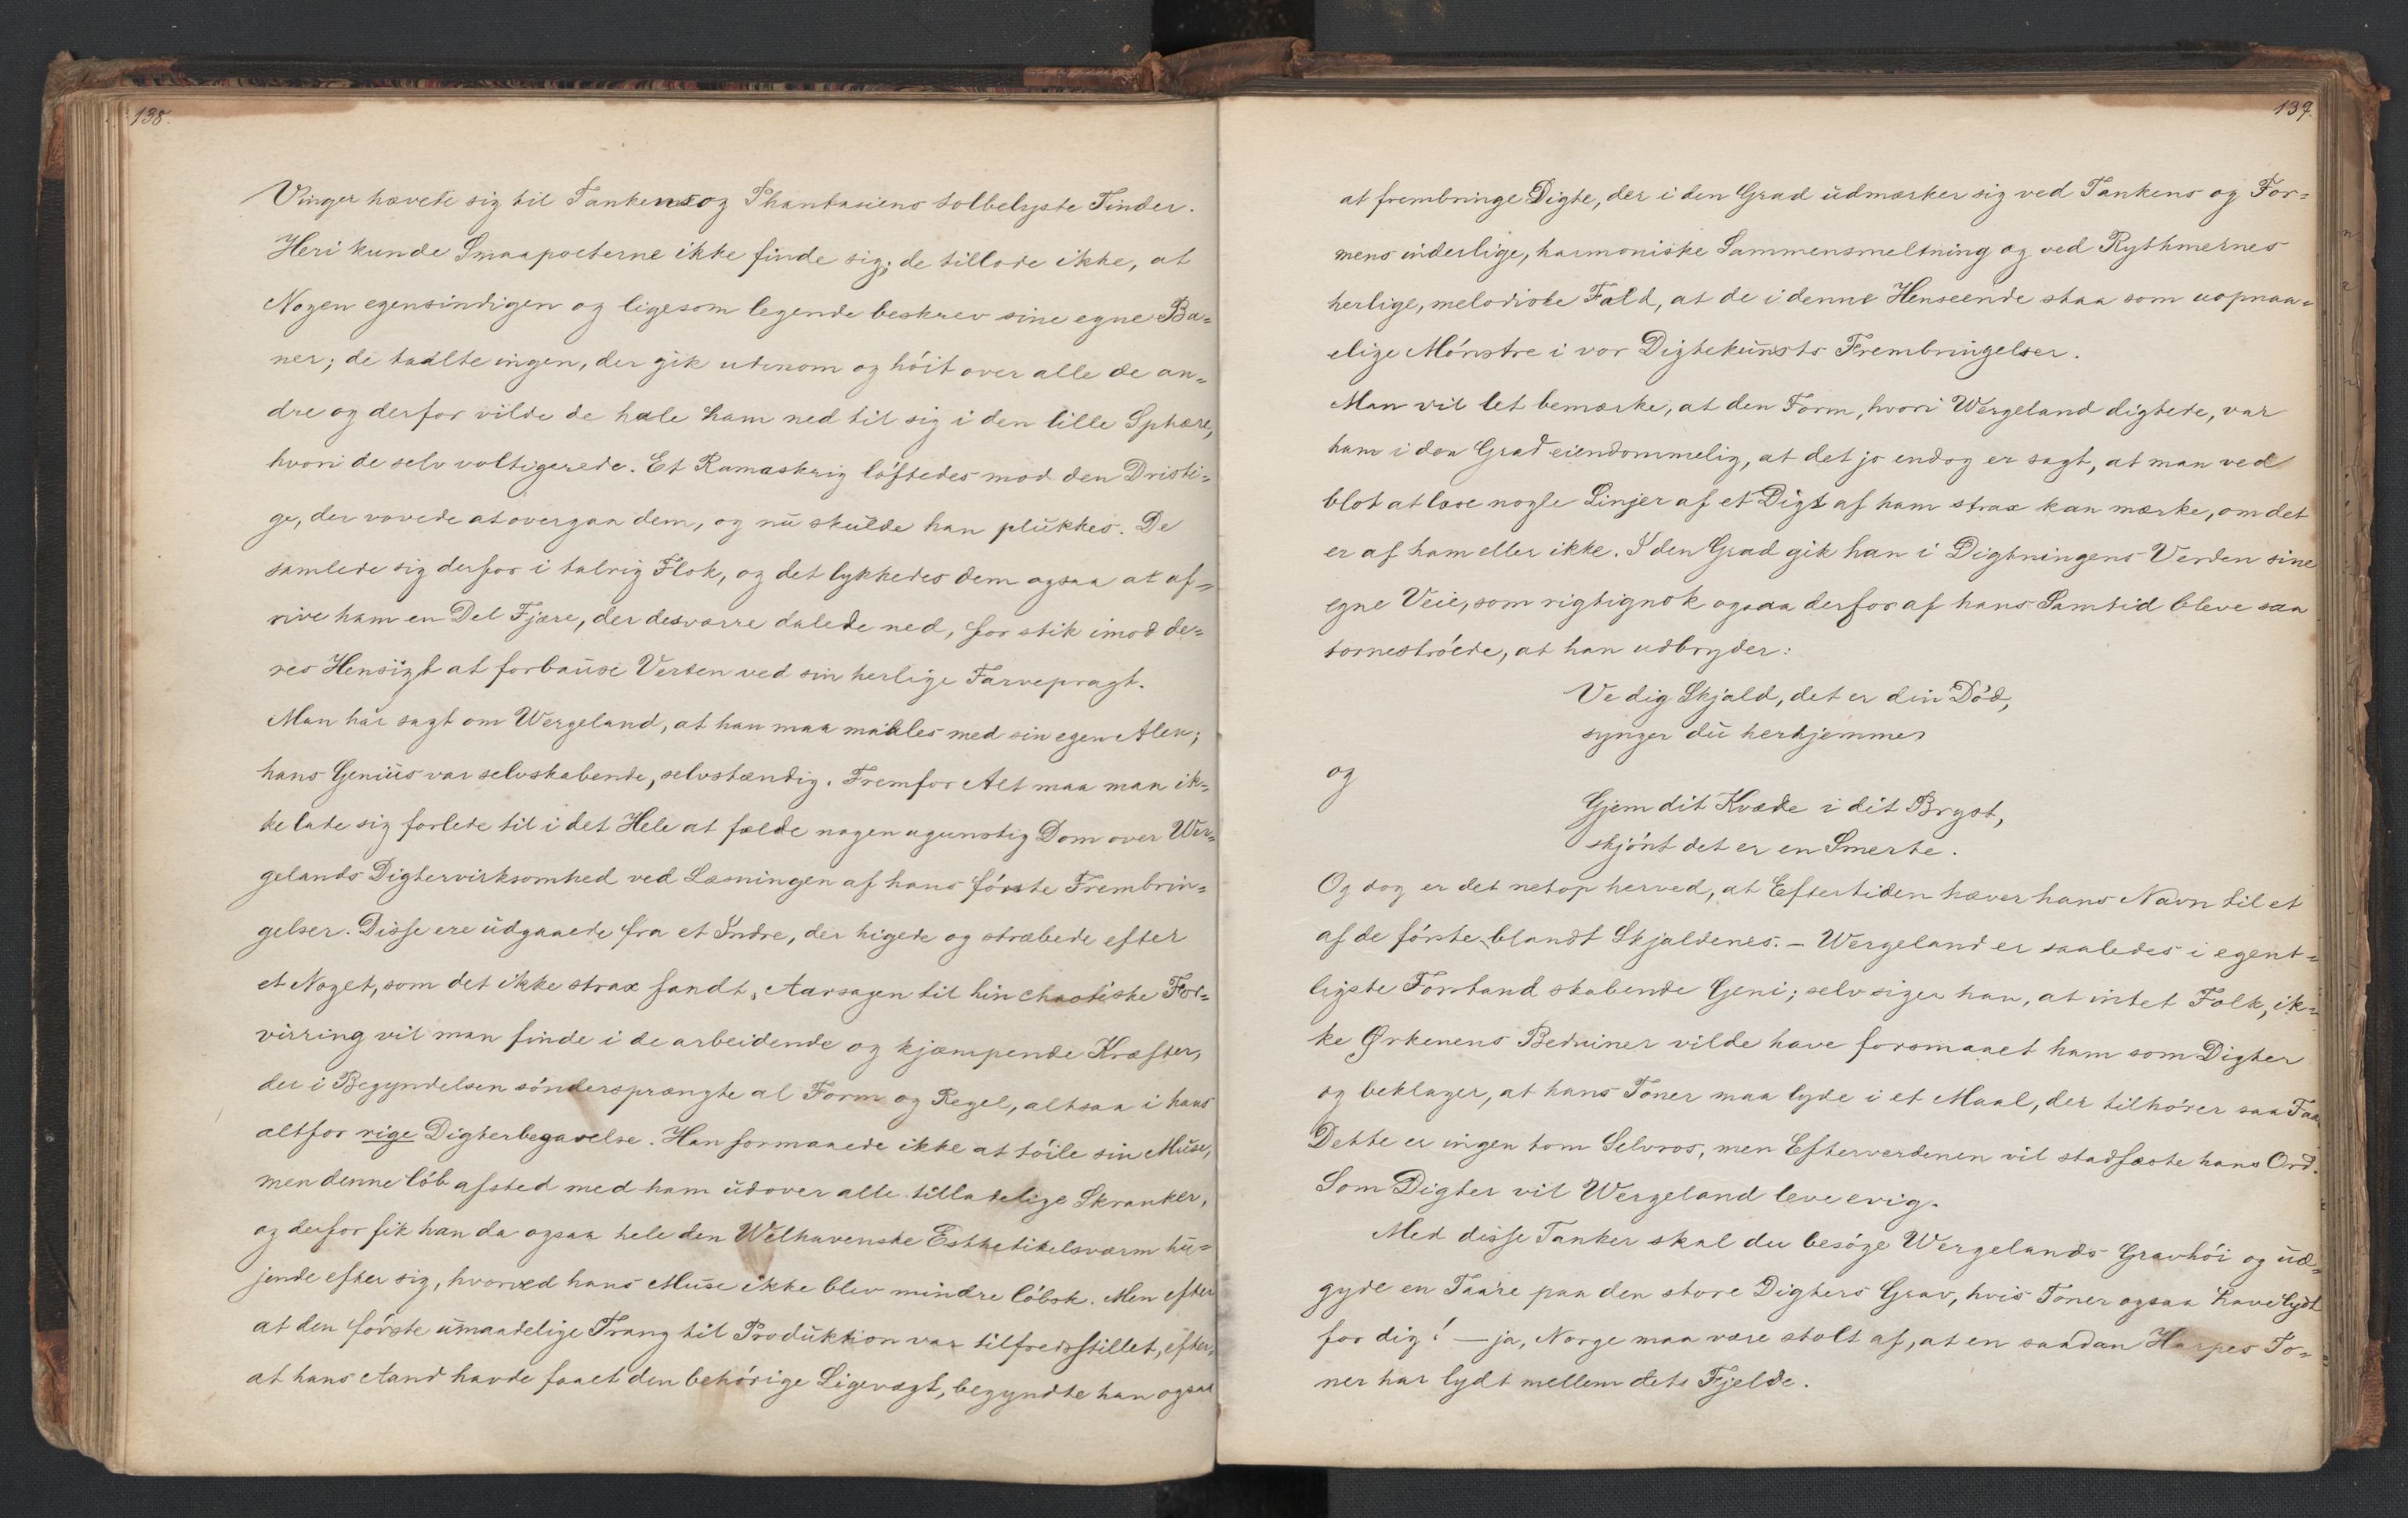 138.
Vinger hævede sig til Tankens og Phantasiens solbelyste Tinder.
Heri kunde Smaapoeterne ikke finde sig; de tillode ikke, at
Nogen egensindigen og ligesom legende beskrev sine egne Ba-
ner; de taalte ingen, der gik udenom og höit over alle de an-
dre og derfor vilde de hale ham ned til sig i den lille Sphære,
hvori de selv voltigerede. Et Ramaskrig löftedes mod den Dristi-
ge, der vovede at overgaa dem, og nu skulde han plukkes. De
samlede sig derfor i talrig Flok, og det lykkedes dem ogsaa at af-
rive ham en Del Fjære, der desværre dalede ned, for stik imod de-
res Hensigt at forbause Verden ved sin herlige Farvepragt.
Man har sagt om Wergeland, at han maa maales med sin egen Alen;
hans Genius var selvskabende, selvstændig. Fremfor Alt maa man ik-
ke lade sig forlede til i det Hele at fælde nogen ugunstig Dom over Wer-
gelands Digtervirksomhed ved Læsningen af hans förste Frembrin-
gelser. Disse ere udgaaede fra et Indre, der higede og stræbede efter
et Noget, som det ikke strax fandt. Aarsagen til hin chaotiske For-
virring vil man finde i de arbeidende og kjæmpende Kræfter,
der i Begyndelsen söndersprængte al Form og Regel, altsaa i hans
altfor rige Digterbegavelse. Han formaaede ikke at töile sin Muse,
men denne löb afsted med ham udover alle tilladelige Skranker,
og derfor fik han da ogsaa hele den Welhavenske Esthetikelsværm hu-
jende efter sig, hvorved hans Muse ikke blev mindre löbsk. Men efter
at den förste umaadelige Trang til Produktion var tilfredsstillet, efter-
at hans Aand havde faaet den behörige Ligevægt, begyndte han ogsaa
139.
at frembringe Digte, der i den Grad udmærker sig ved Tankens og For-
mens inderlige, harmoniske Sammensmeltning og ved Rythmernes
herlige, melodiske Fald, at de i denne Henseende staa som uopnaa-
elige Mönstre i vor Digtekunsts Frembringelser.
Man vil let bemærke, at den Form, hvori Wergeland digtede, var
ham i den Grad eiendommelig, at det jo endog er sagt, at man ved
blot at læse nogle Linjer af et Digt af ham strax kan mærke, om det
er af ham eller ikke. I den Grad gik han i Digtningens Verden sine
egne Veie, som rigtignok ogsaa derfor af hans Samtid bleve saa
torneströede, at han udbryder:
Ve dig Skjald, det er din Död,
synger du herhjemme
og
Gjem dit Kvæde i dit Bryst,
skjönt det er en Smerte.
Og dog er det netop herved, at Eftertiden hæver hans Navn til et
af de förste blandt Skjaldenes. – Wergeland er saaledes i egent-
ligste Forstand skabende Geni; selv siger han, at intet Folk, ik-
ke Ørkenens Beduiner vilde have forsmaaet ham som Digter
og beklager, at hans Toner maa lyde i et Maal, der tilhörer saa Faa.
Dette er ingen tom Selvros, men Efterverdenen vil stadfæste hans Ord.
Som Digter vil Wergeland leve evig.
Med disse Tanker skal du besöge Wergelands Gravhöi og ud-
gyde en Taare paa den store Digters Grav, hvis Toner ogsaa have lydt
for dig! – ja, Norge maa være stolt af, at en saadan Harpes To-
ner har lydt mellem dets Fjelde.